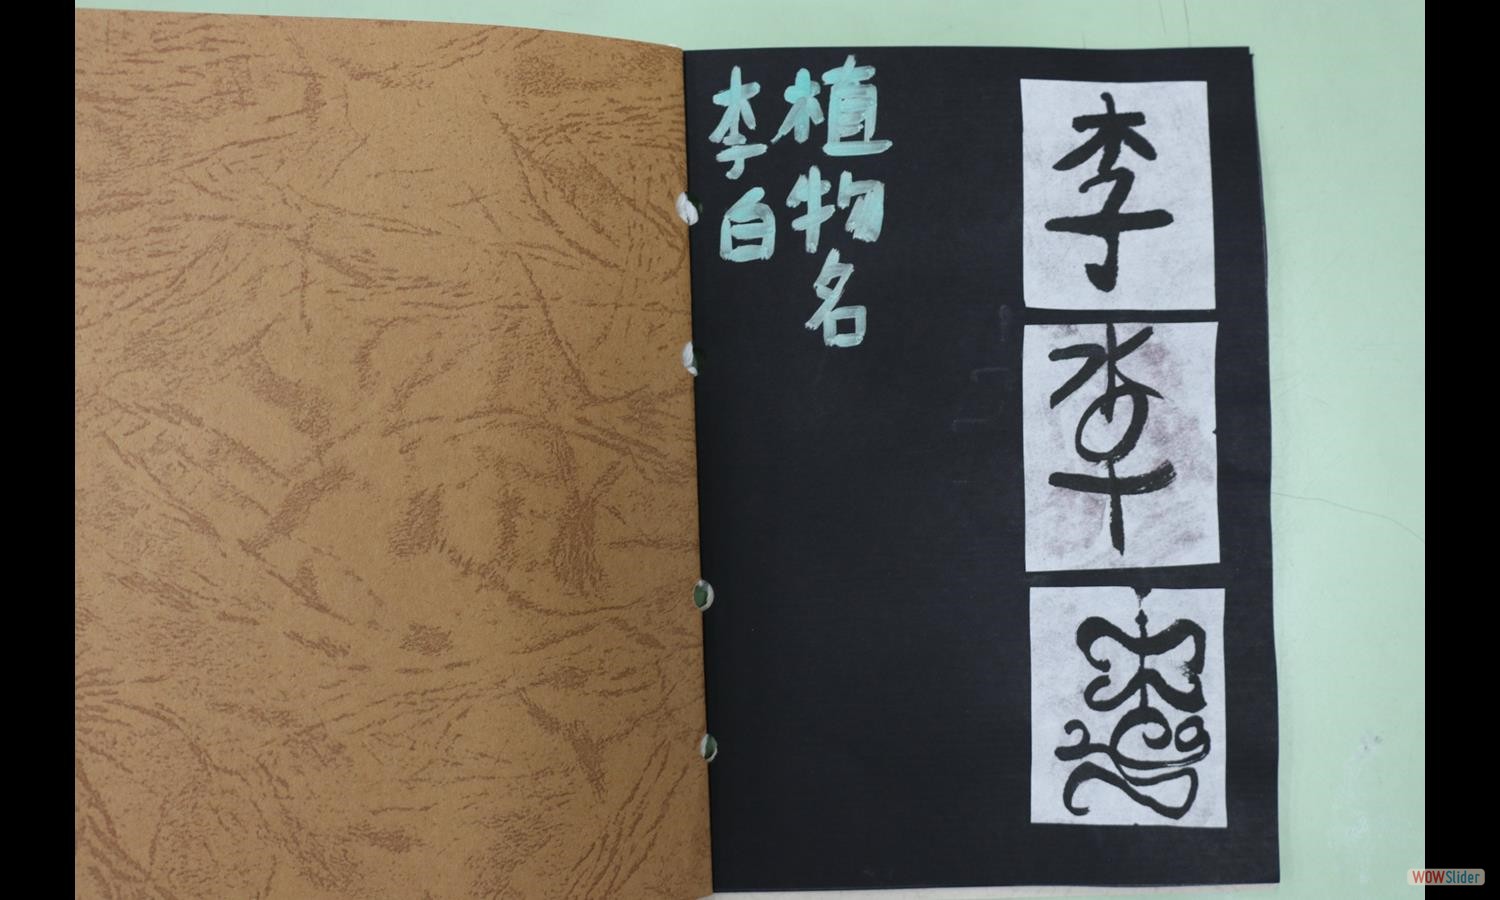 植物名
李白
李
李
李
WOWSlider